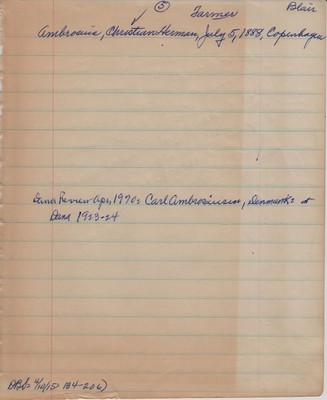 5 Farmer Blair
Ambrosius, Christian Herman, July 5, 1888, Copenhagen
Dana Review Apr, 1970: Carl Ambrosiusen, Denmark: at
Dana 1923-24
184-206)